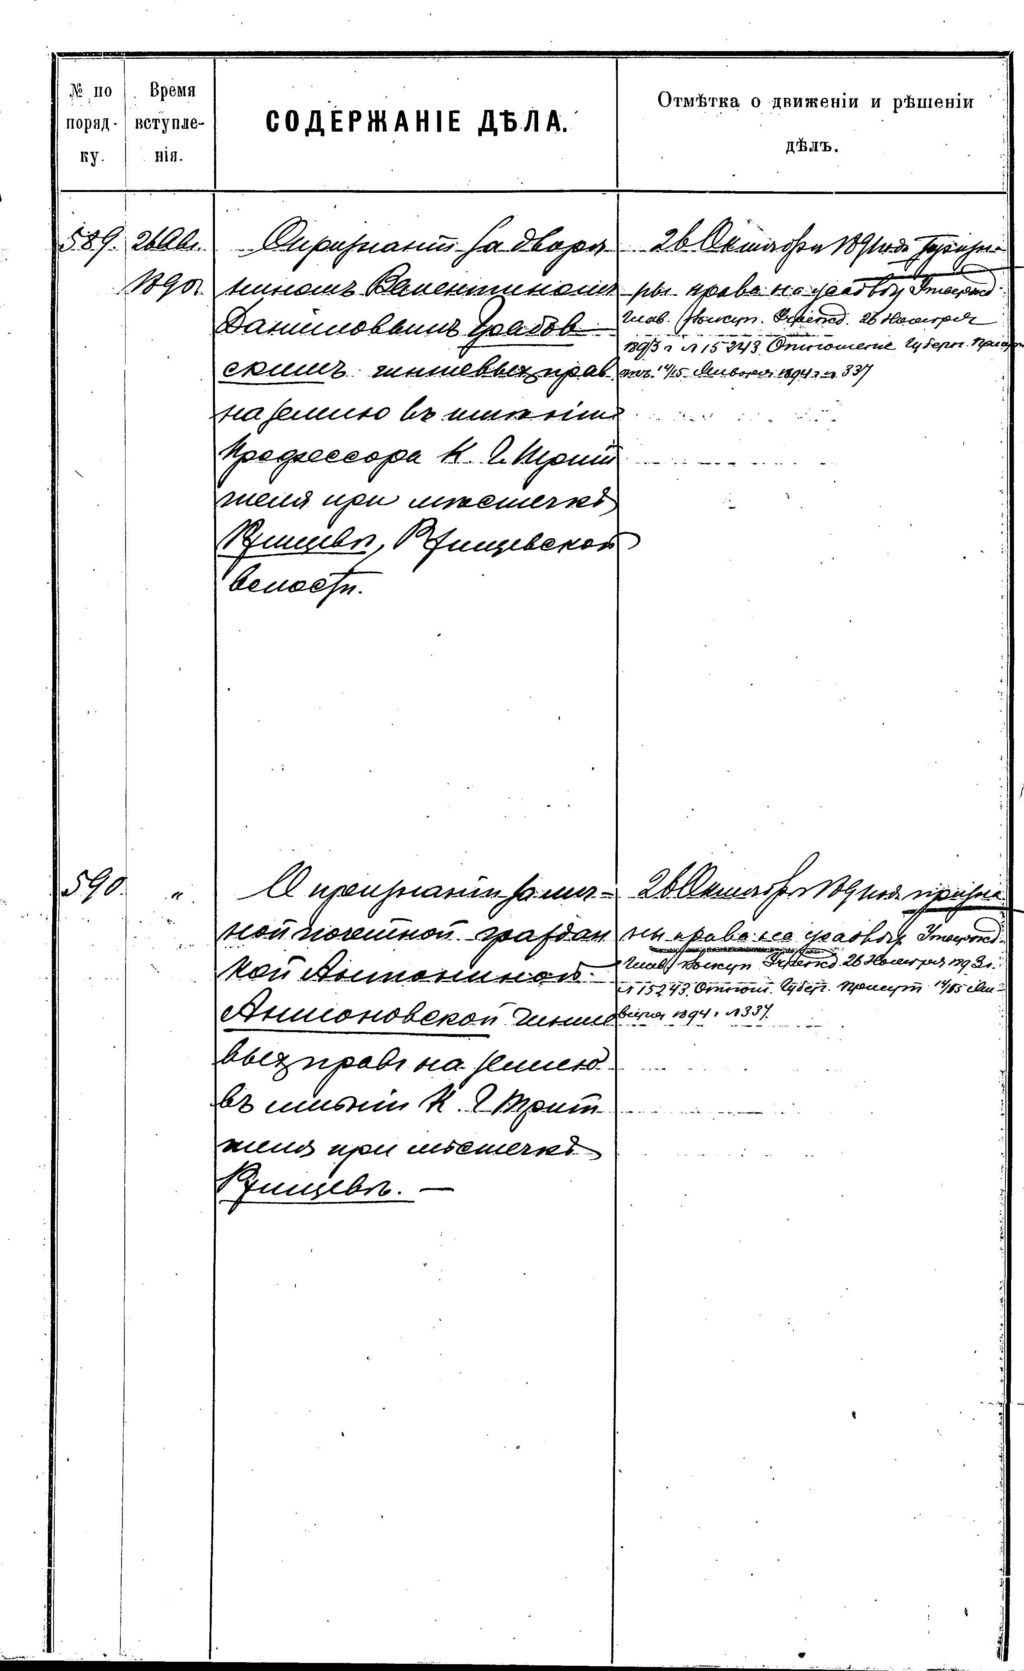 № по порядку.
Время вступленія.
СОДЕРЖАНІЕ ДѢЛА.
Отмѣтка о движеніи и рѣшеніи дѣлъ.
589.
26 Авг.
1890г.
О признаніи за дворя
ниномъ Валентиномъ
Даниловымъ Грабов
скимъ чиншевыхъ прав
на землю въ имѣніи
Профессора К. Г. Трит
шеля при мѣстечкѣ
Ржищевѣ, Ржищевской
волости.
26 Октября 1891 года призна
ны права на усадьбу Утвержд.
Глав. Выкуп. Учрежд. 26 Ноября
1893 г № 15243 Отношение Губерн. Присут
14/15 Января 1894 г № 337
590.
"
О признаніи за лич-
ной почетной граждан
кой Антониной
Антоновской чинше
выхъ правъ на землю
въ имѣніи К. Г. Трит
шеля при мѣстечкѣ
Ржищевѣ. —
26 Октября 1891 года призна
ны права на усадьбу Утвержд.
Глав. Выкуп. Учрежд. 26 Ноября 1893г.
№ 15243. Отнош. Губерн. Присут 14/15 Ян-
варя 1894 г. № 337.